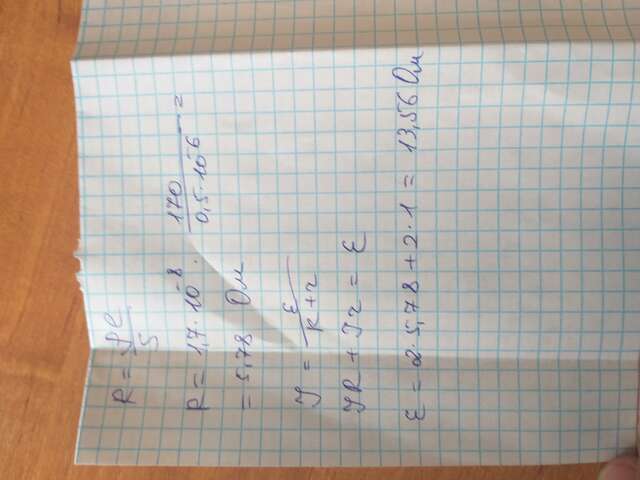 R = ρl/S
R = 1,7·10⁻⁸ · 170/0,5·10⁻⁶ =
= 5,78 Ом
I = ε/R+r
IR + Ir = ε
ε = 2·5,78 + 2·1 = 13,56 Ом